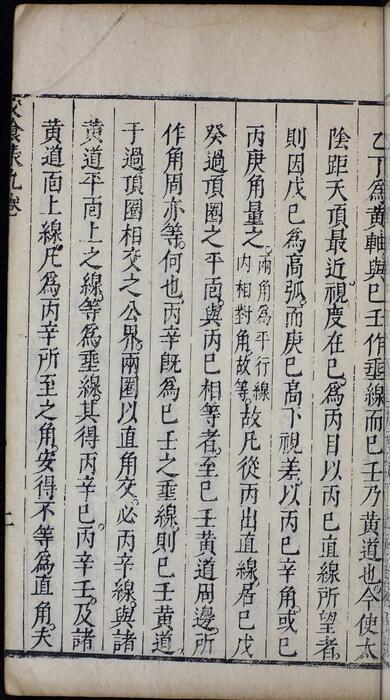 乙丁爲黃軸與巳壬作垂線而巳壬乃黃道也今使太
陰距天頂最近視度在巳爲丙目以丙巳直線所望者
則因戊巳爲高弧而庚巳高下視差以丙巳辛角或巳
丙庚角量之兩角爲平行線內相對角故等故凡從丙出直線居巳戊
癸過頂圈之平面與丙巳相等者至巳壬黃道周邊所
作角周亦等何也丙辛旣爲巳壬之垂線則巳壬黃道
于過頂圈相交之公界兩圈以直角交必丙辛線與諸
黃道平面上之線等爲垂線其得丙辛巳丙辛壬及諸
黃道面上線凡爲丙辛所至之角安得不等爲直角夫
交食表九卷